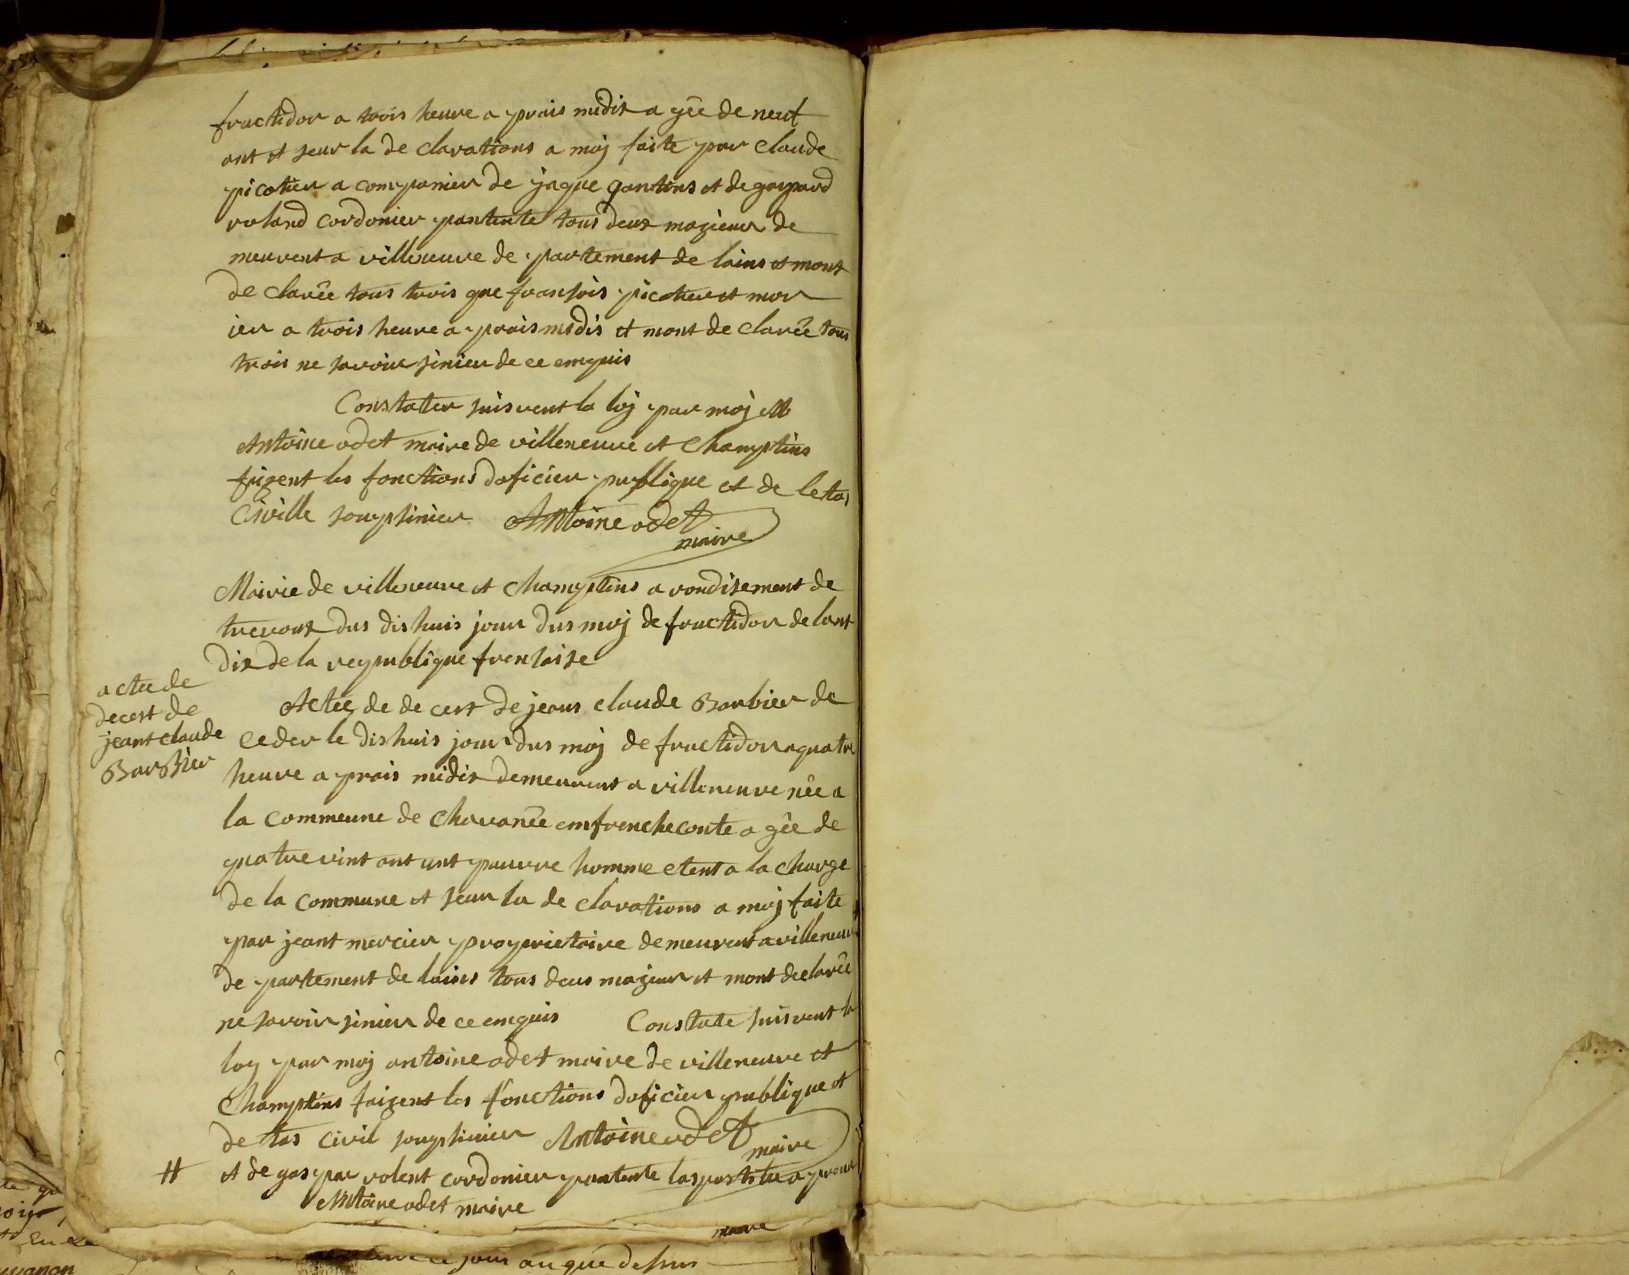 fructidor a trois heure a prais midis a gée de neuf
ant et seur la de clarations a moj faite par claude
picotier a companier de jaque gantins et de gaspard
roland cordonier pantente tous deux magieur de
meurent a villeneuve de partement de lains et mont
de clarée tous trois que fransois picotier et mor
ier a trois heure a prais midis et mont de clarée tous
trois ne savoir sinier de ce emquis
Constater suisvent la loj par moj
Antoine odet maire de villeneuve et Champtins
faizent les fonctions doficier publique et de letas
Civille soupsinier Antoine odet
maire
Mairie de villeneuve et Champtins a rondisement de
trevout dus dishuis jour dus moj de fructidor de lant
dix de la republique fransaise
acte de
decest de
jeant claude
Barbier
Actee de de cest de jeans claude Barbier de
ceder le dishuis jour dus moj de fructidor a quatre
heure a prais midis demeurent a villeneuve née a
la commeune de Chavanée emfrencheconte a gée de
quatre vint ant unt pauvre homme etent a la charge
de la commune et seur la de clarations a moj faite
par jeant mercier proprietaire demeurent a villeneuve
de partement de lains tous deus majeur et mont declarée
ne savoir sinier de ce emquis Constate suisvent la
loy par moj antoine odet maire de villeneuve et
Champtins faizent les fonctions doficier publique et
de tas civil soupsinier Antoine odet
maire
# et de gaspar rolent cordonier pantente
Antoine odet maire
maire
jour au que desus